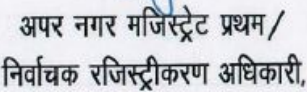 अपर नगर मजिस्ट्रेट प्रथम/
निर्वाचक रजिस्ट्रीकरण अधिकारी,